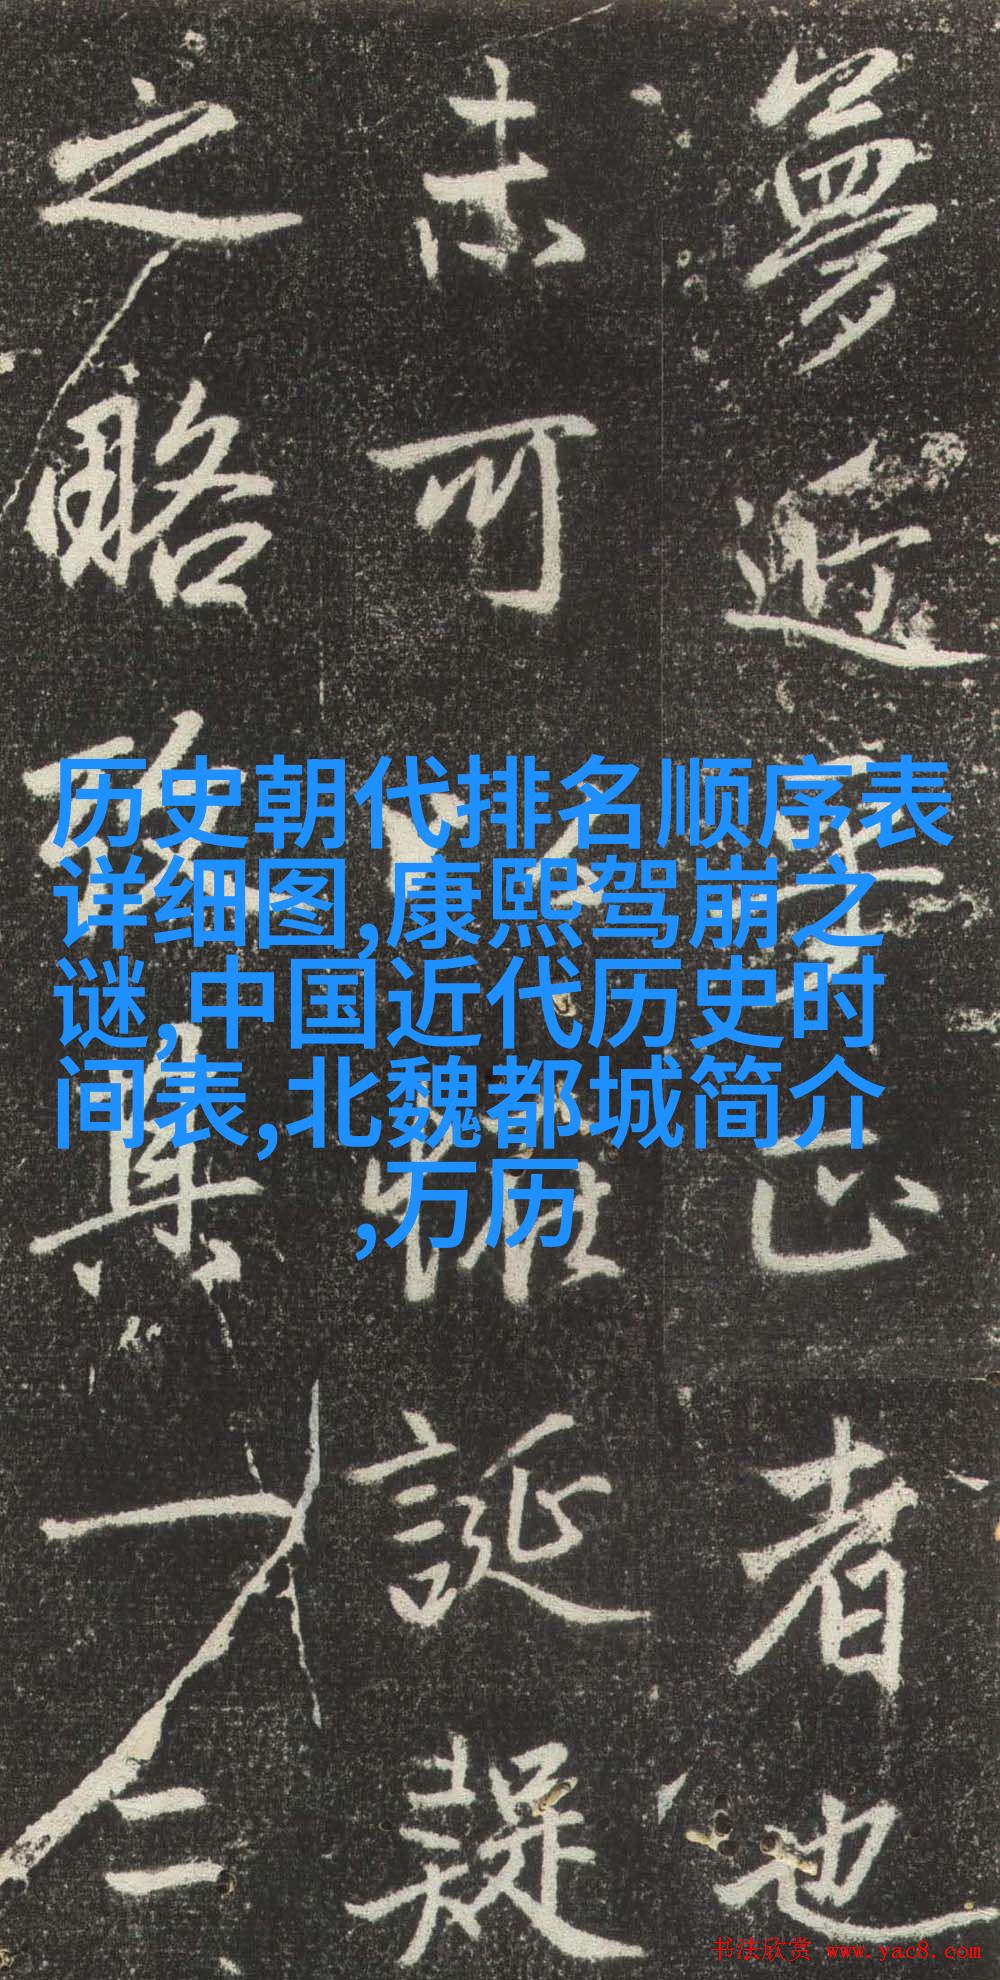 历史朝代排名顺序表
详细图,康熙驾崩之
谜,中国近代历史时
间表,北魏都城简介
,万历
夢近正者也
可以誕疑
之略故其一
书法欣赏 www.yac8.com